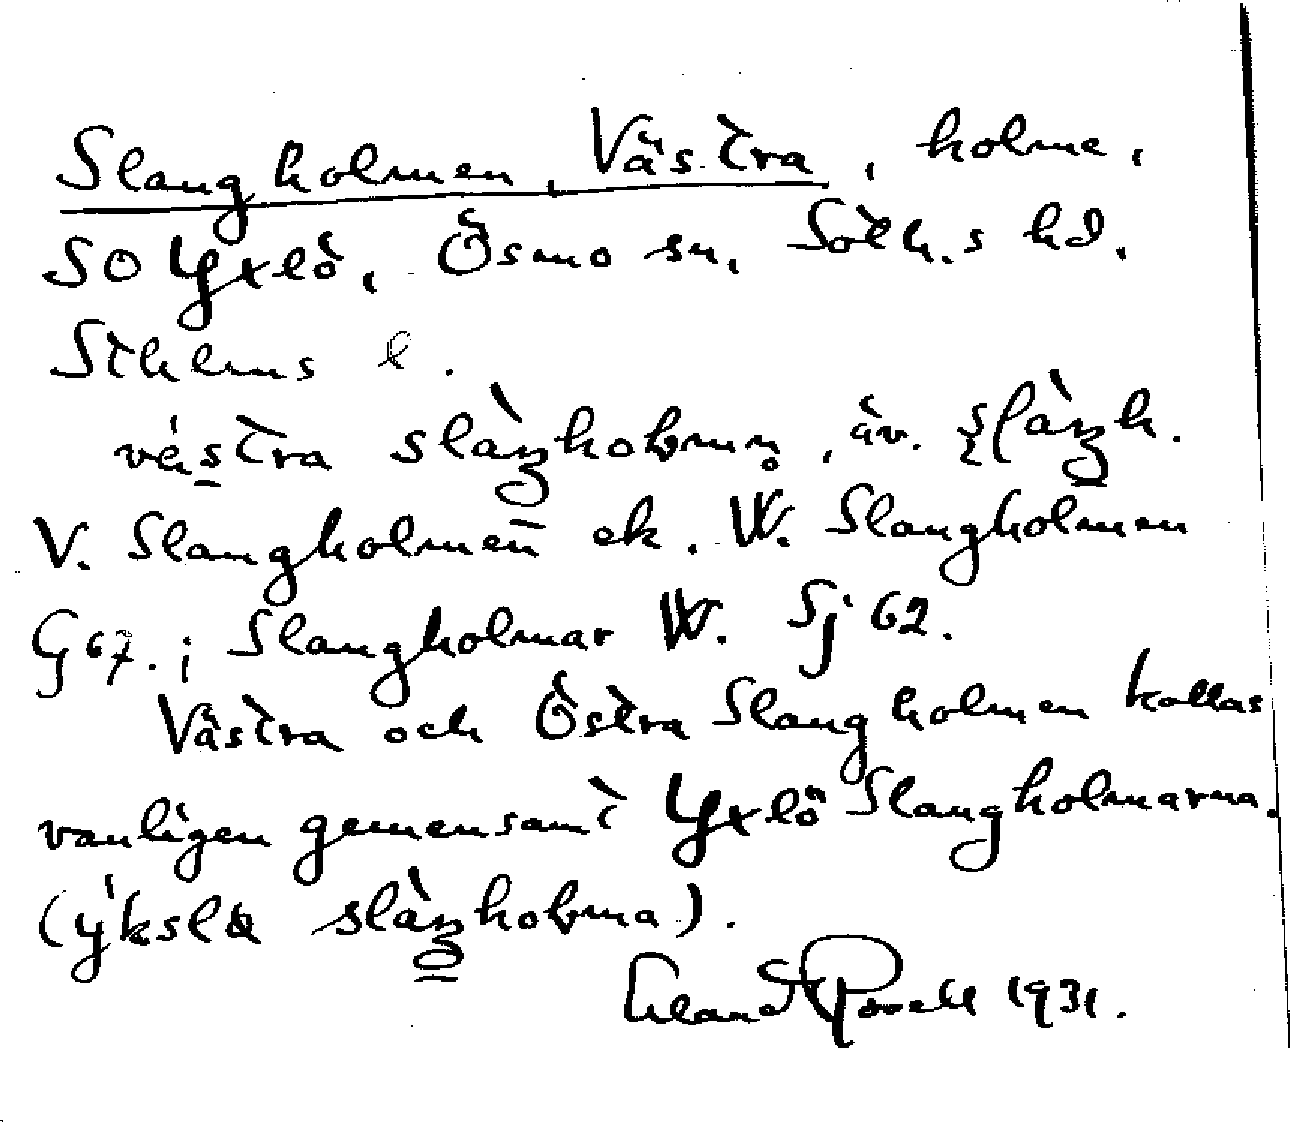 Slangholmen, Västra, holme,
SO Yxlö, Ösmo sn, Soth.s hd.
Sthlms l.
västra slàŋholmn̥, äv. ʂlàŋh.
V. Slangholmen ek. W. Slangholmen
G 67. ; Slangholmar W. Sj 62.
Västra och Östra Slangholmen kallas
vanligen gemensamt Yxlö Slangholmarna.
(ýkslö slàŋholma).
1931.